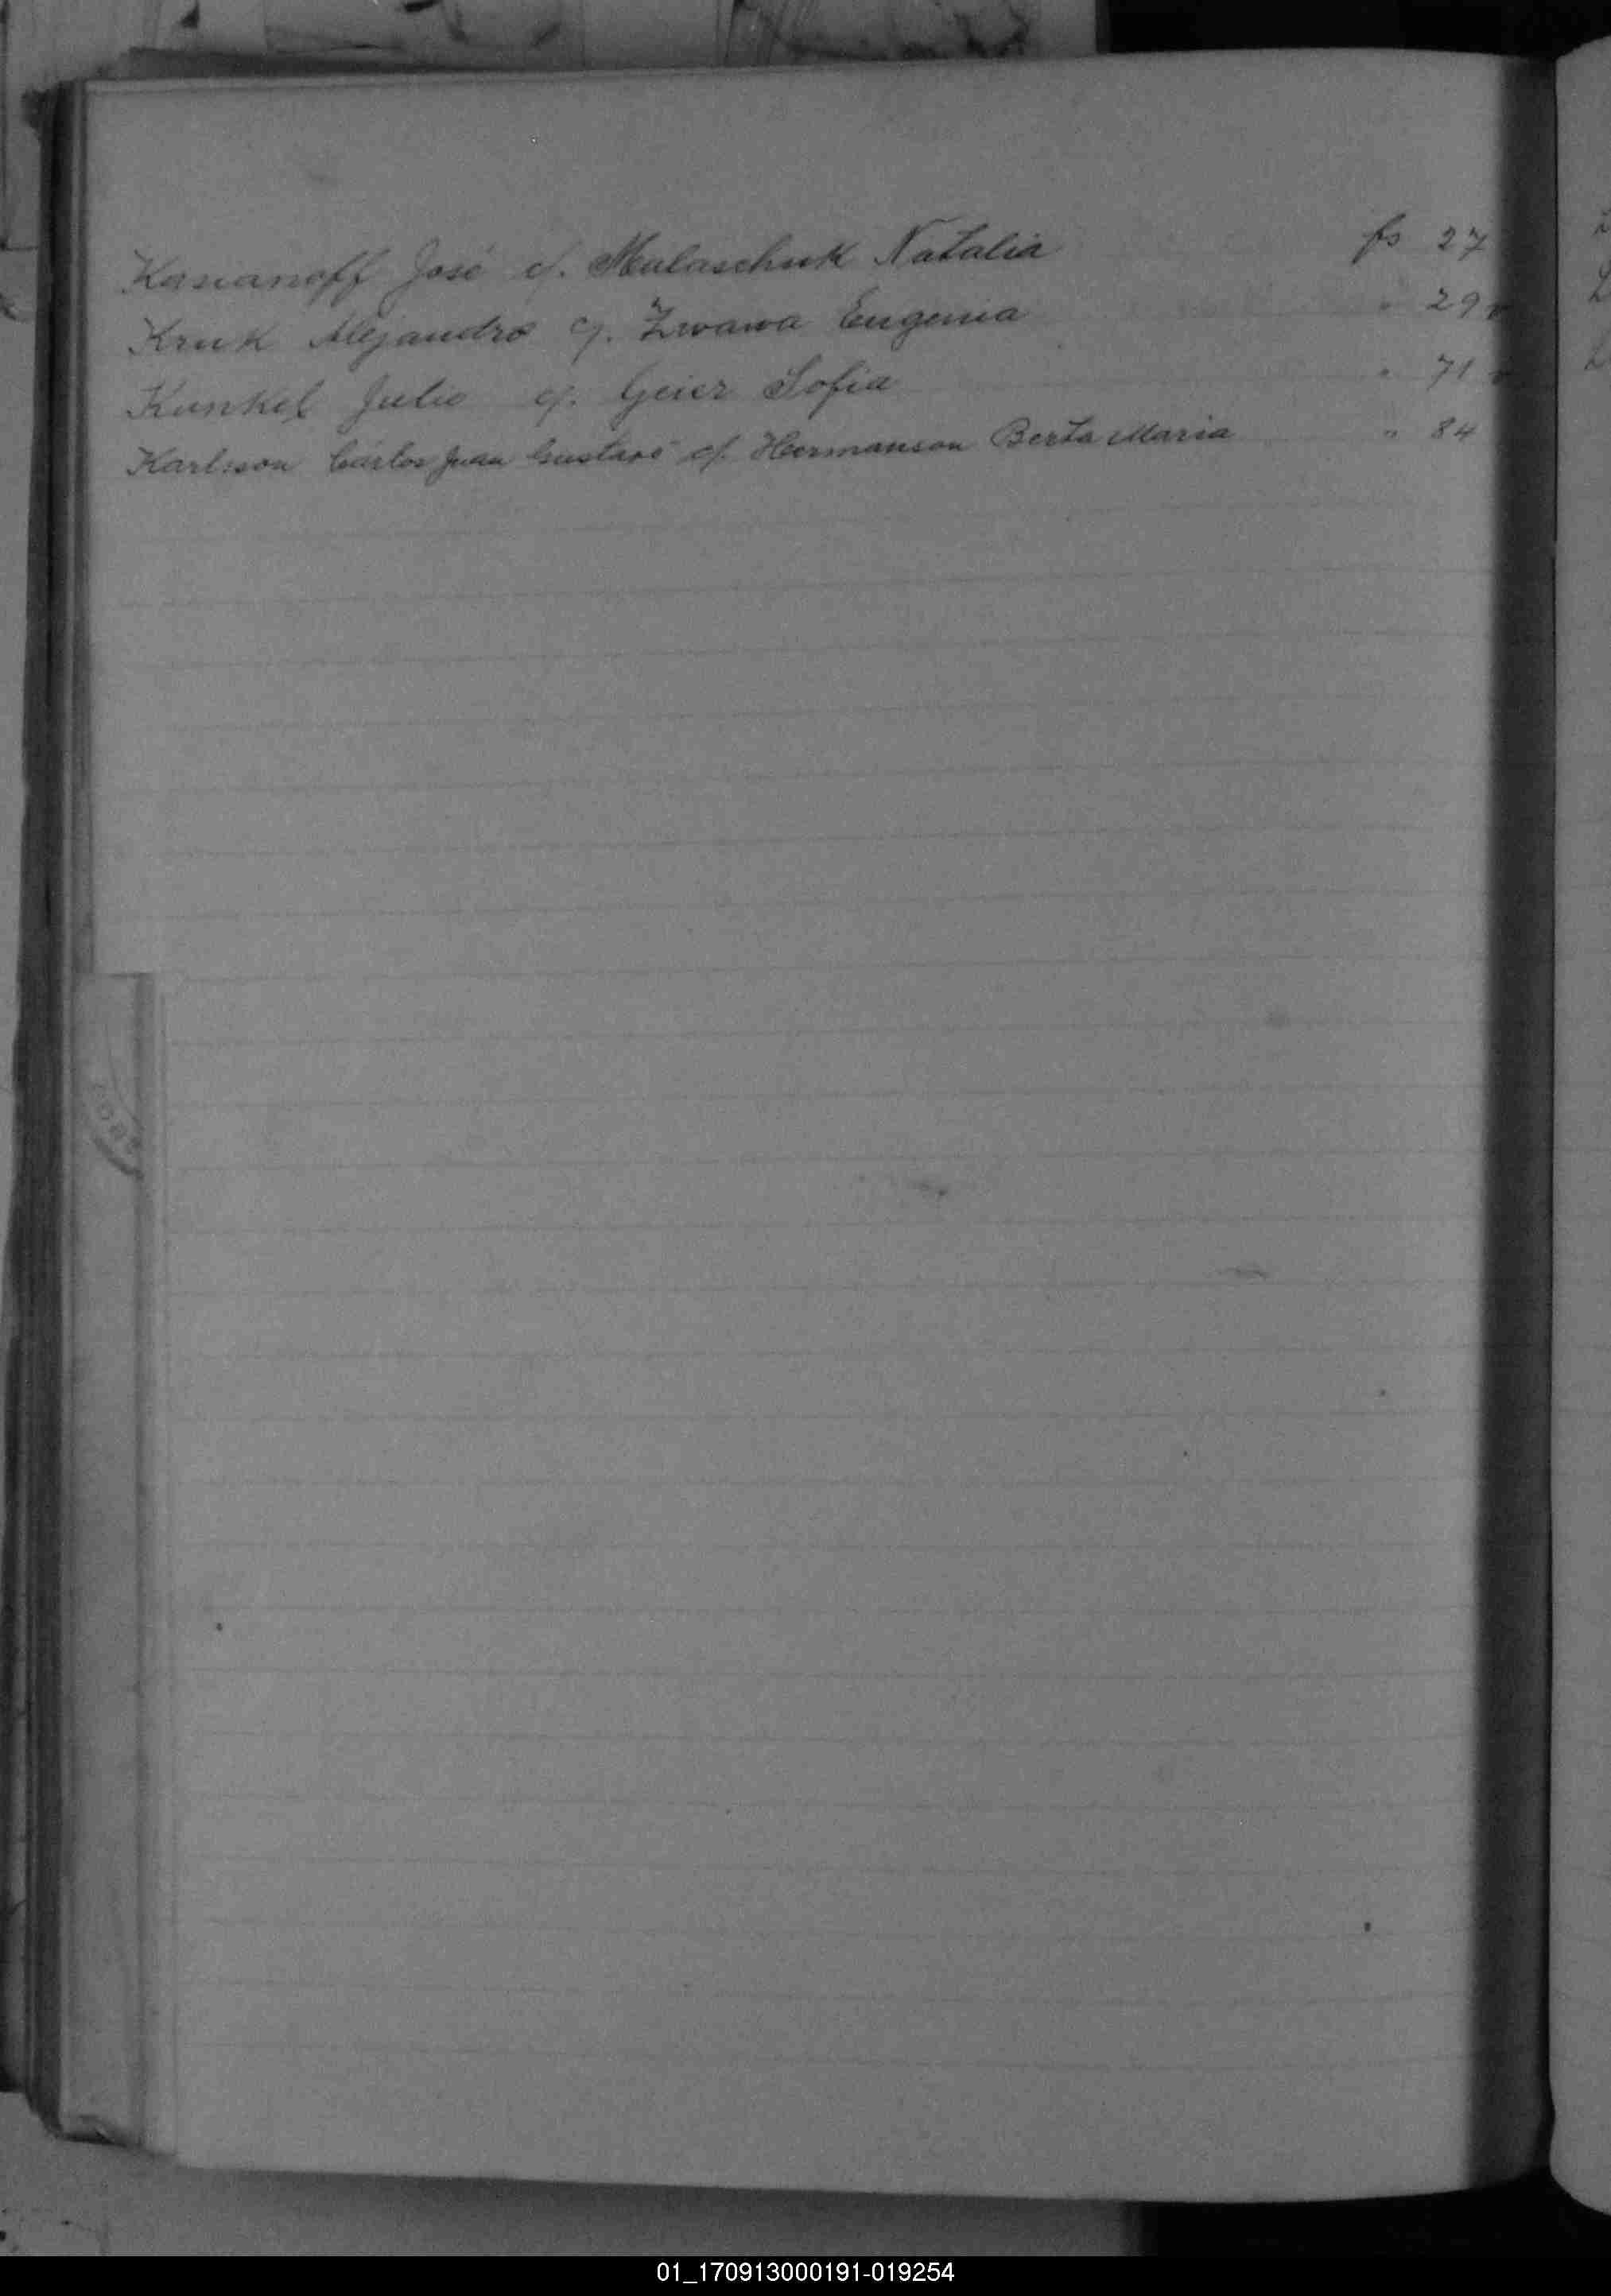 Kasianoff José c/. Malaschuk Natalia fs 27
Kruk Alejandro c/. Zwawa Eugenia " 29 v
Kunkel Julio c/. Geier Sofia " 71 v
Karlsson Cárlos Juan Gustavo c/. Hermanson Berta Maria " 84
01_170913000191-019254